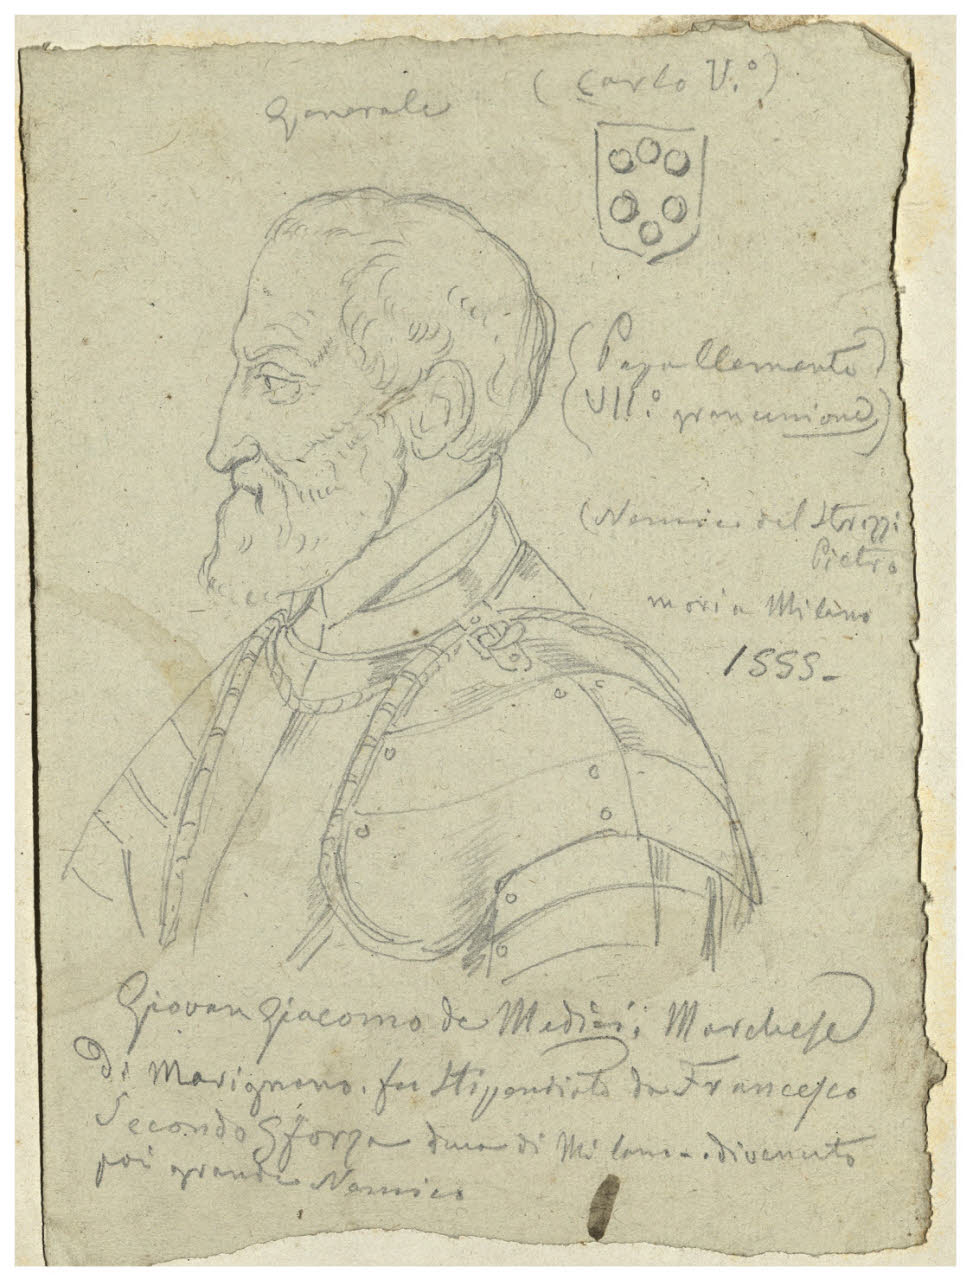 Generale
(Carlo V.°)
(Papa Clemente)
(VII.° gran unione)
(Nemico del Strozzi
Pietro
mori a Milano
1555-
Giovan Giacomo de Medici; Marchese
Di Marignano. fu Stipendiato da Francesco
Secondo Sforza duca di Milano. divenuto
poi grande Nemico